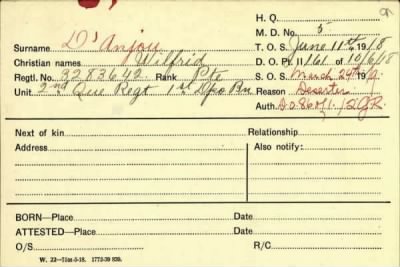 H. Q.
M. D. No. 5
Surname D'Anjou T. O. S. June 11th 1918
Christian names Wilfrid D. O. Pt. II 161 of 10/6/18
Regtl. No. 3283642 Rank Pte S. O. S. March 29th 19
Unit 2nd Que Regt 1st Dpo Bn Reason Deserter
Auth.
Next of kin Relationship
Address Also notify:
BORN—Place Date
ATTESTED—Place Date
O/S R/C